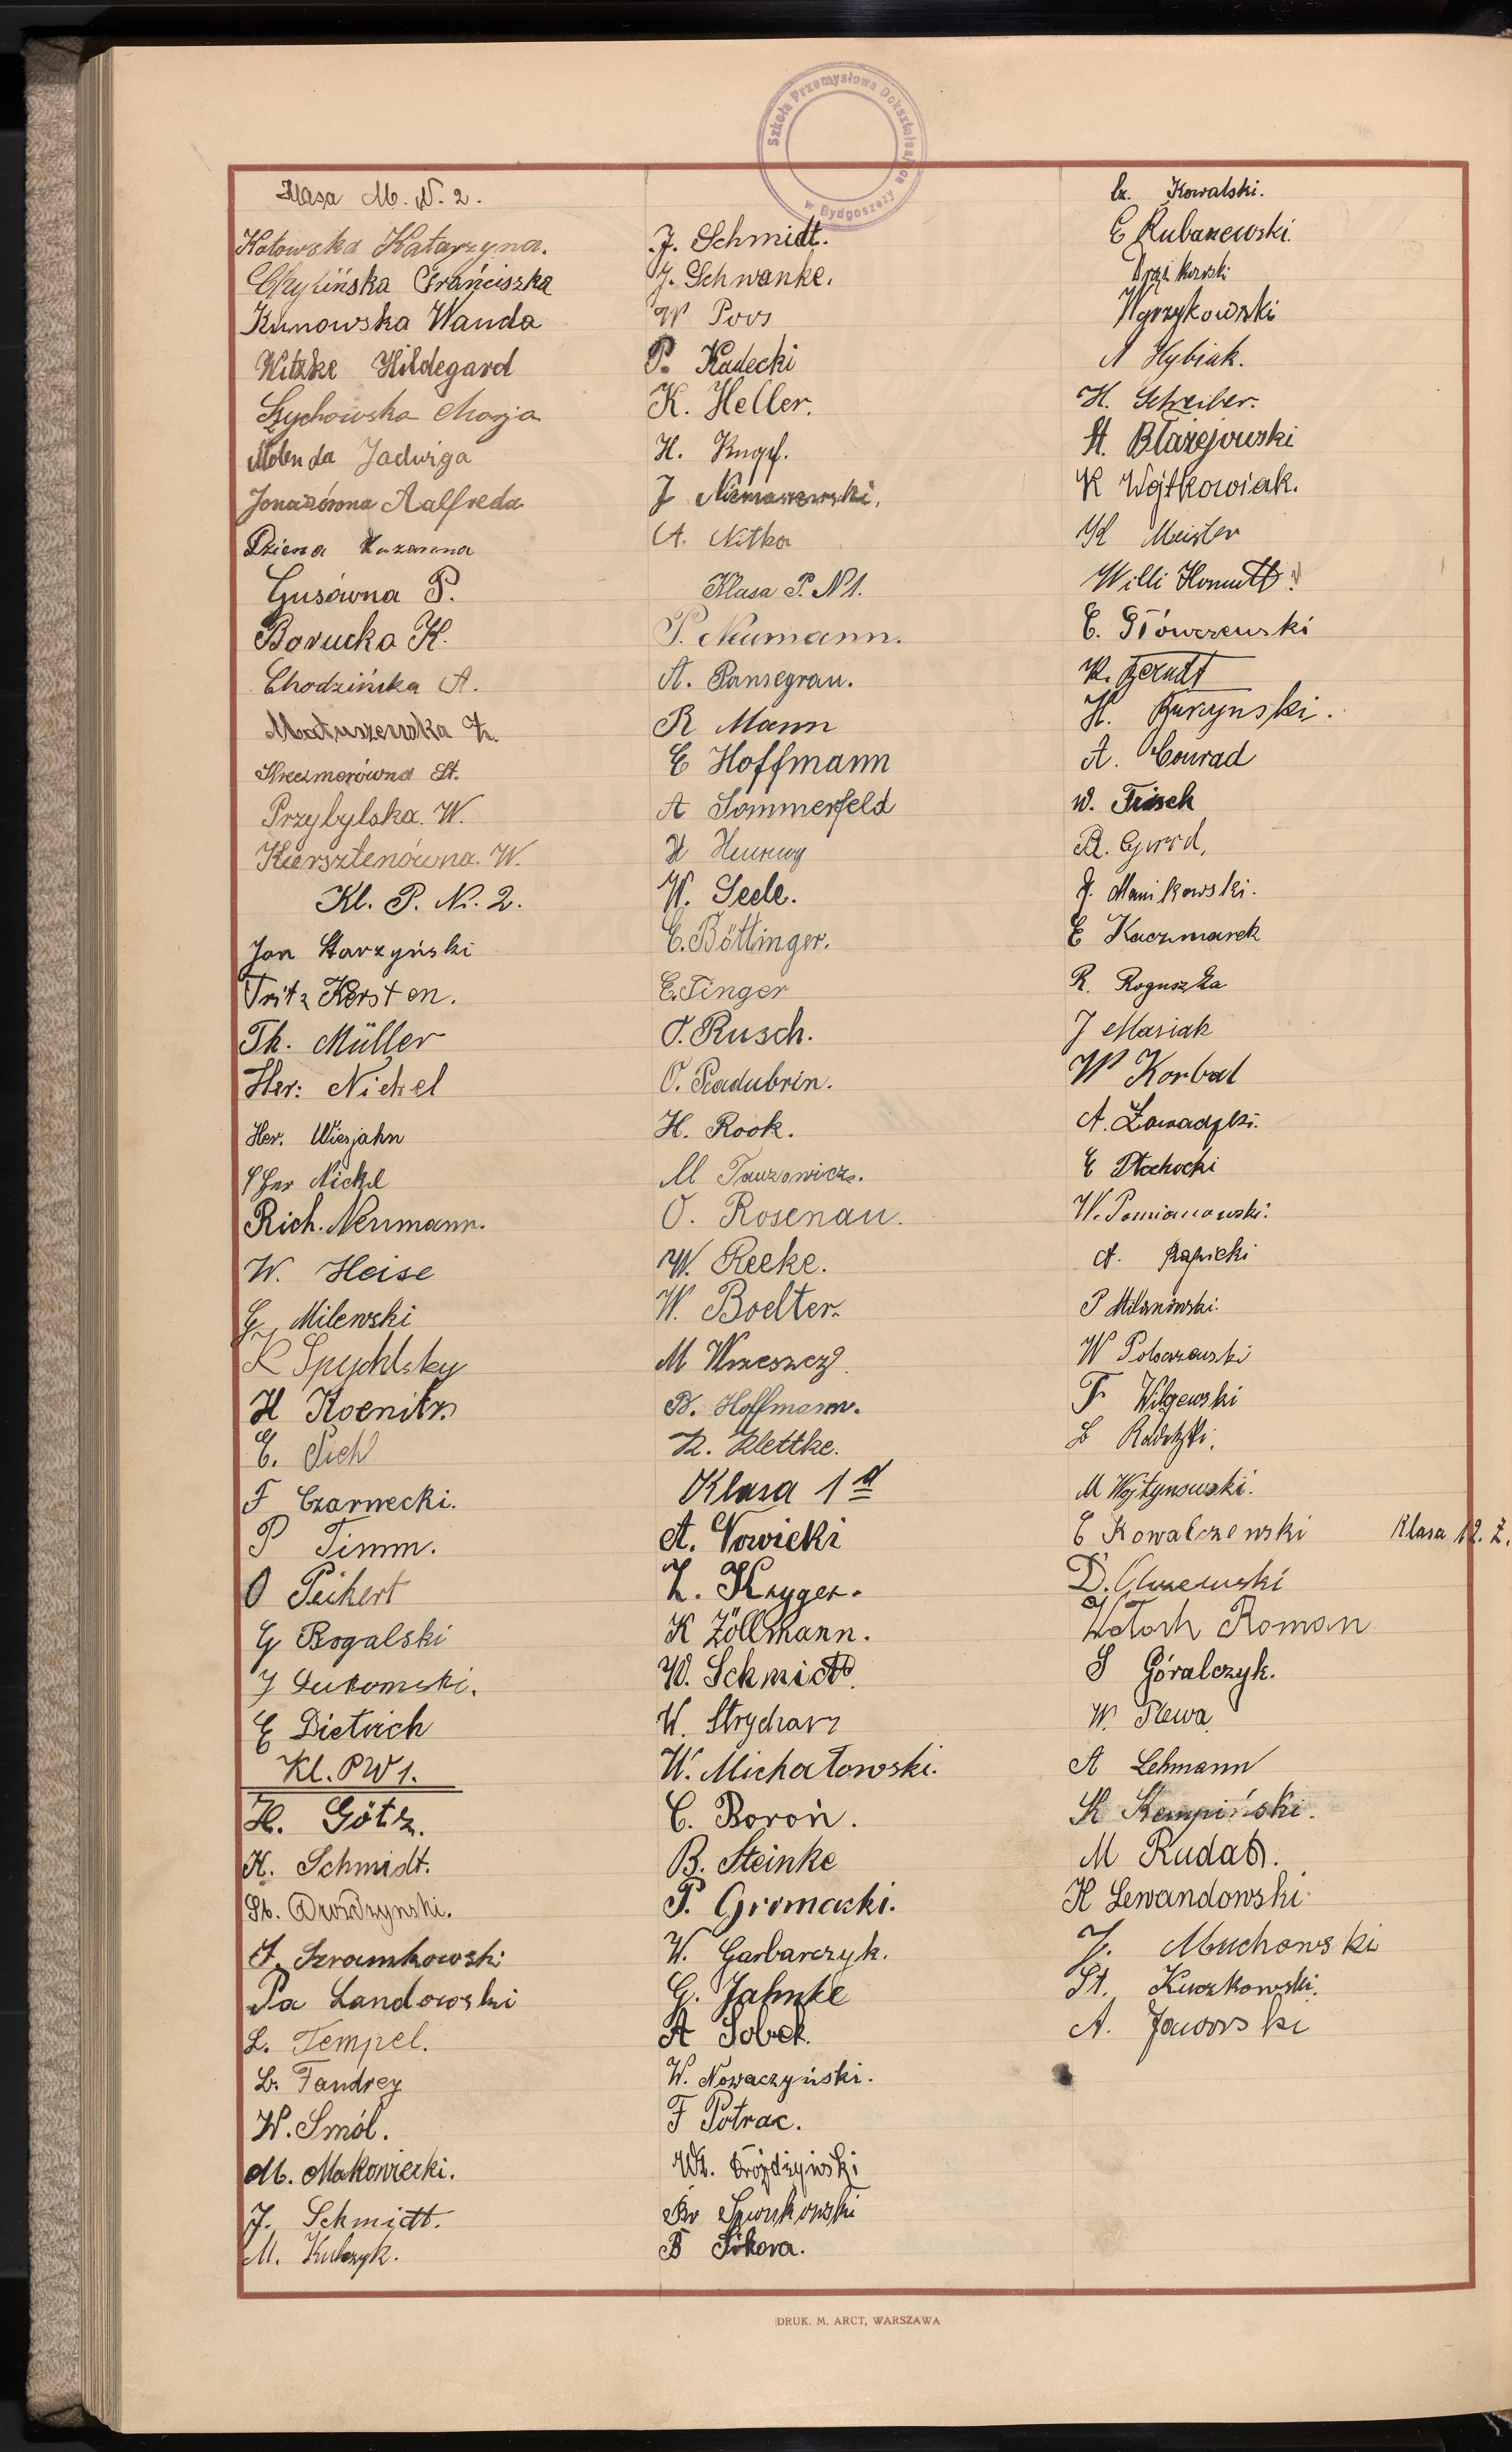 Szkoła Przemysłowa Dokształcająca w Bydgoszczy
Klasa M. N. 2.
Kotowska Katarzyna.
Franciszka
Kunowska Wanda
Witzke Hildegard
Szychowska Marja
Molenda Jadwiga
Aalfreda
Dziena
Gusówna P.
Borucka K.
Chodzińska A.
Matuszewska
St.
Przybylska. W.
Kiersztenówna. W.
Kl. P. N. 2.
Jan Starzyński
Fritz Kersten.
Th. Müller
Her: Nickel
Her. Wiesjahn
Nickel
Rich. Neumann.
W. Heise
G. Milewski
K Spychlsky
H Koenitz
E. Pichl
F Czarnecki.
P Timm.
O Peikert
G Rogalski
J Lukomski.
E Dietrich
Kl. PW 1.
H. Götz.
K. Schmidt.
St. Drozdzynski.
J. Szramkowski
Pa Landowski
L. Tempel.
L. Fandrey
W. Smól.
M. Makowiecki.
J. Schmidt.
M. Kubzyk.
J. Schmidt.
J. Schwanke.
W Poos
P. Kadecki
K. Heller.
H. Knopf.
J
A. Nitka
Klasa P. N 1.
P. Neumann.
A. Pansegrau.
R Mann
E Hoffmann
A Sommerfeld
H
W. Seele.
E. Böttinger.
E. Finger
O. Rusch.
O. Radubrin.
H. Rook.
M Tauzowicz.
O. Rosenau.
W. Reeke.
W. Boelter.
M Wrzeszcz
B. Hoffmann.
R. Klettke.
Klasa 1 d
A. Nowicki
Z. Kryger.
K Zöllmann.
W. Schmidt.
W. Strycharz
W. Michałowski.
C. Boroń.
B. Steinke
P. Gromacki.
W. Garbarczyk.
G. Jahnke
A Sobek.
W. Nowaczyński.
F Potrac.
Wł. Dróżdżyński
Br
B Sikora.
Kowalski.
E Rubaszewski.
Wyrzykowski
A Hybiak.
H. Schreiber.
St. Błażejowski
K Wojtkowiak.
K Meister
Willi Homuth
E. Główczewski
K. Berndt
H. Buczynski.
A. Conrad
W. Tusch
R.
J. Manikowski.
E Kaczmarek
R. Roguszka
J Masiak
W Korbal
A. Zawadzki.
E Płochocki
W. Pomianowski.
A. Rapicki
P Milanowski.
W
F Wilgewski
L Radetzki.
M Wojtynowski.
E Kowalczewski Klasa 12. Z.
D. Olszewski
Watoch Roman
S Góralczyk.
W. Plewa
A Lehmann
K Kempiński.
M Rudat.
K Lewandowski
J. Muchowski
St. Kuczkowski.
A. Jaworski
DRUK. M. ARCT, WARSZAWA